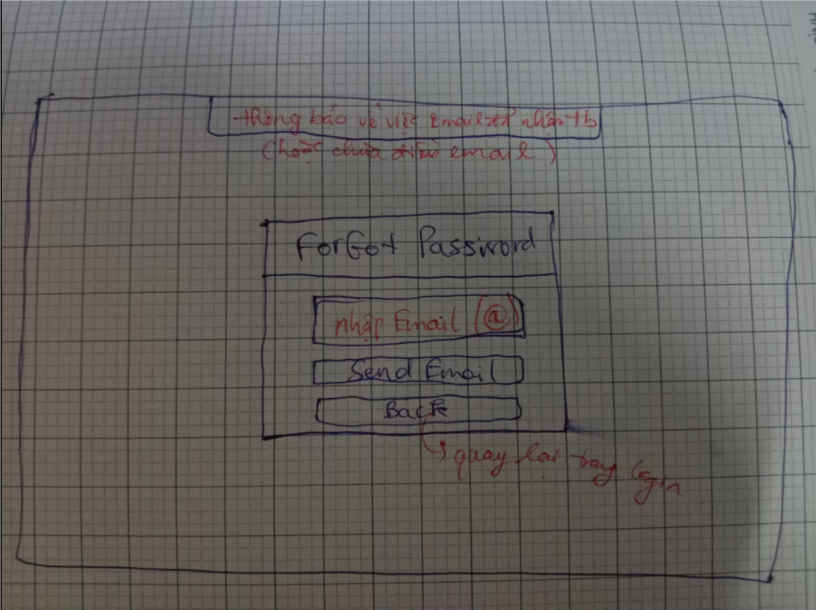 thông báo về việc Email nhận tb
(hoặc chưa điền email)
ForGot Password
nhập Email (@)
Send Email
Back
quay lại trang login